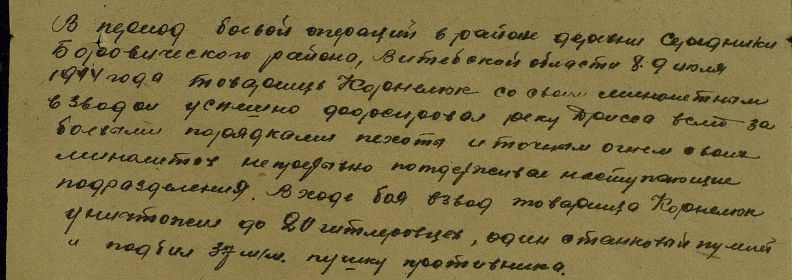 В период боевой операций в районе деревни Середняки
Борковического района, Витебской области 8-9 июля
1944 года товарищ Корнелюк со своим минометным
взводом успешно форсировал реку Дрисса вслед за
боевыми порядками пехоты и точным огнем своих
минометов непрерывно поддерживал наступающие
подразделения. В ходе боя взвод товарища Корнелюк
уничтожил до 20 гитлеровцев, один станковый пулемет
и подбил 37 м/м. пушку противника.